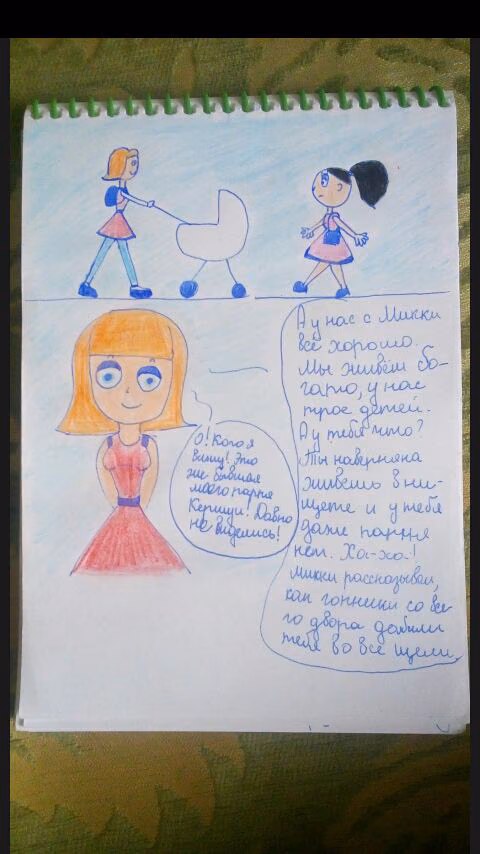 О! Кого я
вижу! Это
же бывшая
моего парня
Керищи! Давно
не виделись!
А у нас с Микки
всё хорошо.
Мы живём бо-
гато, у нас
трое детей.
А у тебя что?
Ты наверняка
живёшь в ни-
щете и у тебя
даже парня
нет. Ха-ха!
Микки рассказывал,
как гопники со все-
го двора долбили
тебя во все щели.